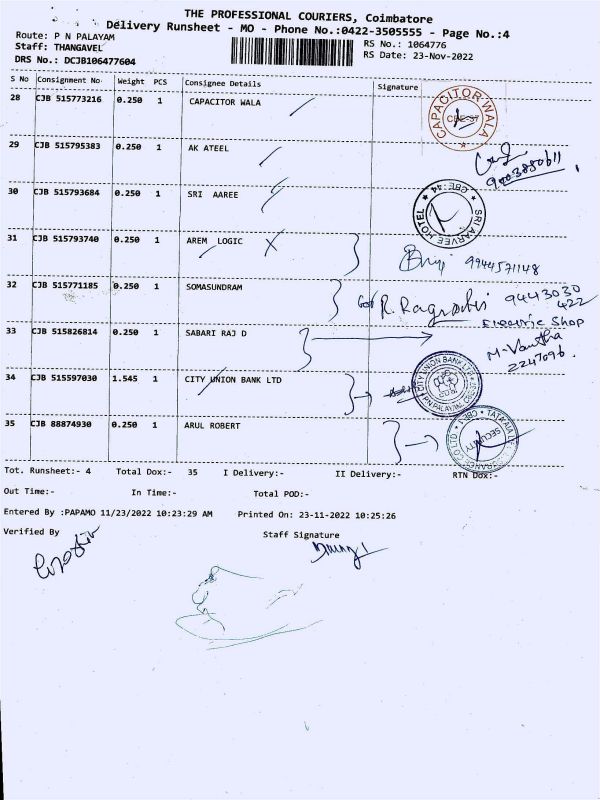 THE PROFESSIONAL COURIERS, Coimbatore
Delivery Runsheet - MO - Phone No.:0422-3505555 - Page No.:4
Route: P N PALAYAM
Staff: THANGAVEL
DRS No.: DCJB106477604
RS No.: 1064776
RS Date: 23-Nov-2022
S No Consignment No Weight PCS Consignee Details Signature
28 CJB 515773216 0.250 1 CAPACITOR WALA
CAPACITOR WALA
29 CJB 515795383 0.250 1 AK ATEEL
9003880611
30 CJB 515793684 0.250 1 SRI AAREE
SRI AARVEE HOTEL CBE-44
31 CJB 515793740 0.250 1 AREM LOGIC X
9944571148
32 CJB 515771185 0.250 1 SOMASUNDRAM
9443030
422
Electric Shop
33 CJB 515826814 0.250 1 SABARI RAJ D
M. Vanitha
2247096.
34 CJB 515597030 1.545 1 CITY UNION BANK LTD
CITY UNION BANK LTD.
P.N PALAYAM
35 CJB 88874930 0.250 1 ARUL ROBERT
SECURITY
Tot. Runsheet:- 4 Total Dox:- 35 I Delivery:- II Delivery:- RTN Dox:-
Out Time:- In Time:- Total POD:-
Entered By :PAPAMO 11/23/2022 10:23:29 AM Printed On: 23-11-2022 10:25:26
Verified By Staff Signature